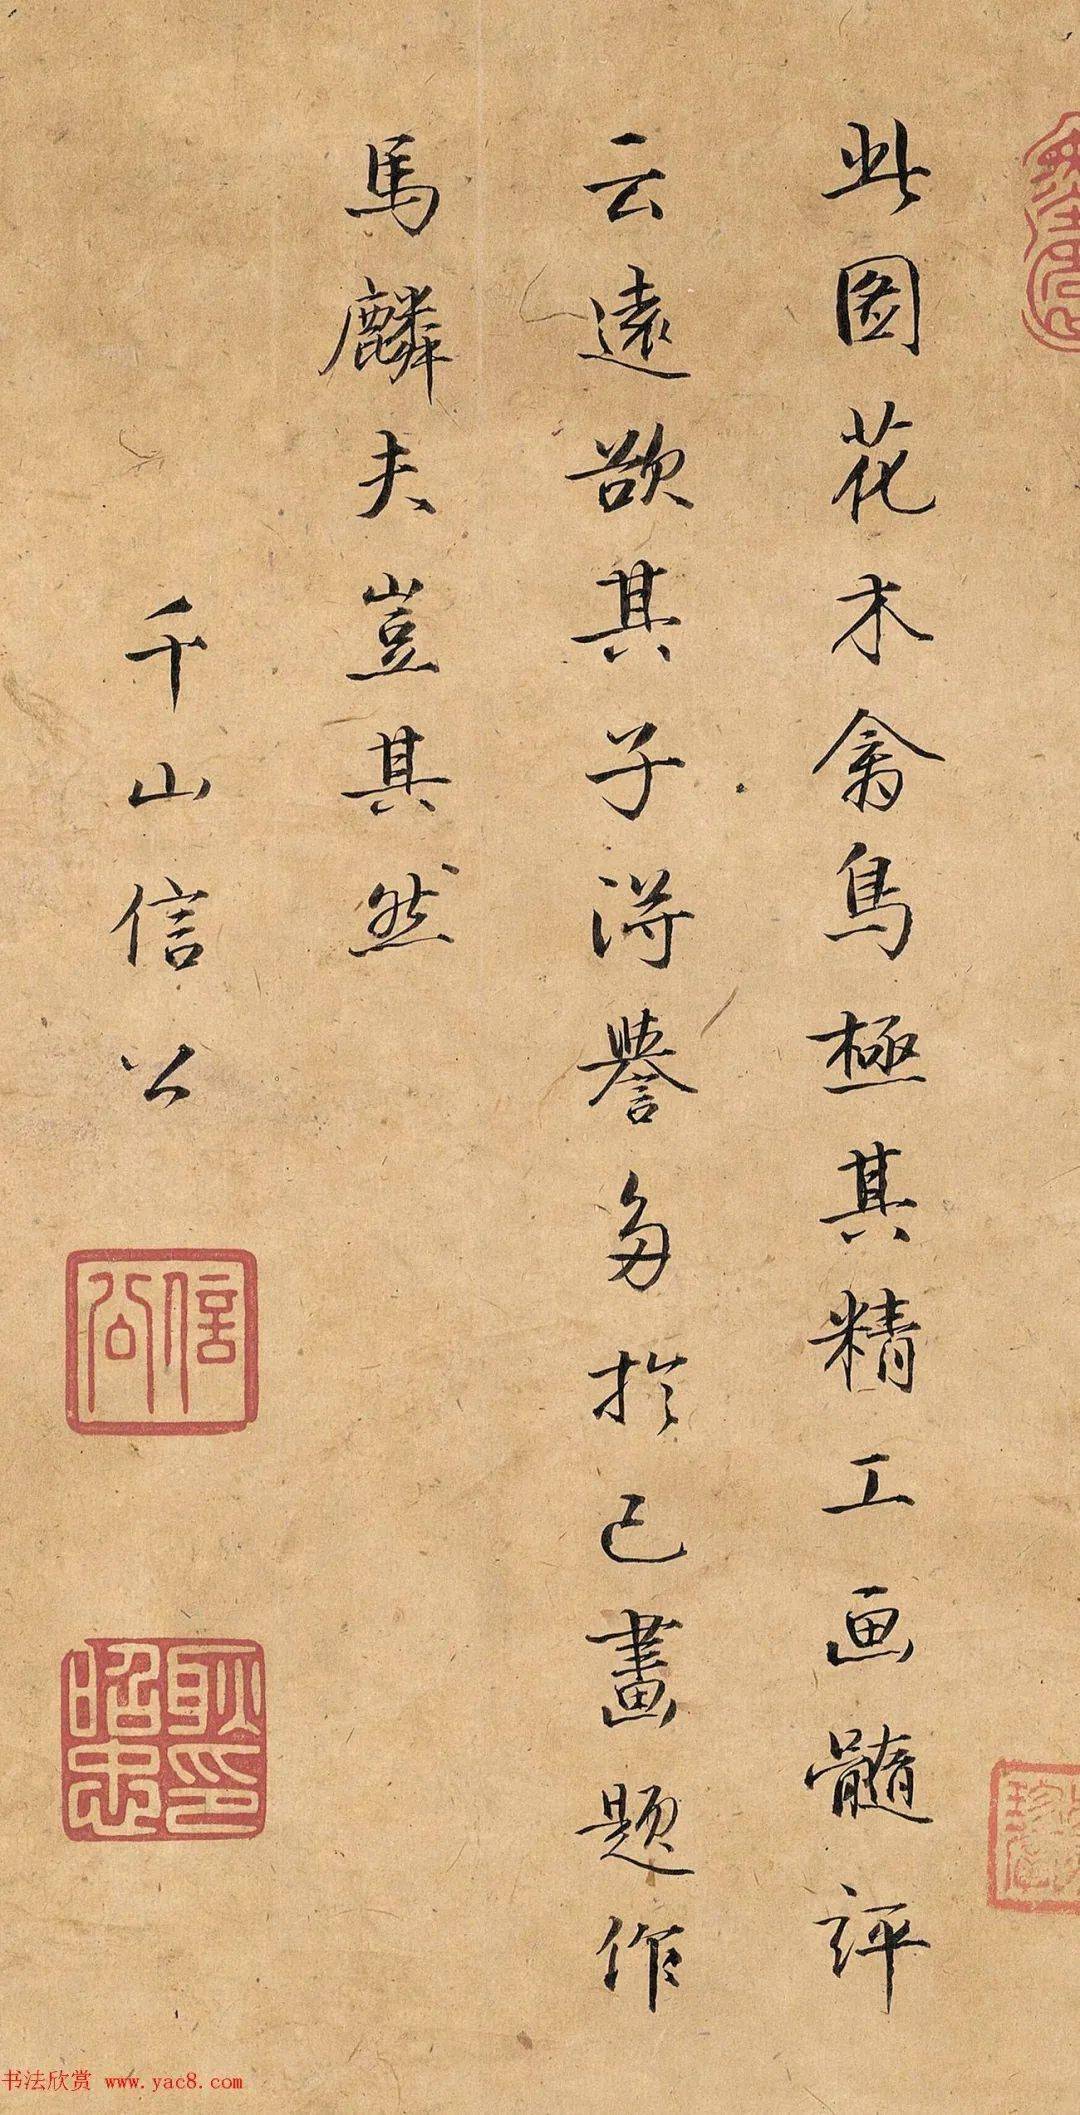 此圖花木禽鳥極其精工画髓評
云遠欲其子得譽多於己畫題作
馬麟夫豈其然
千山信公
信公
耿昭忠印
书法欣赏 www.yac8.com